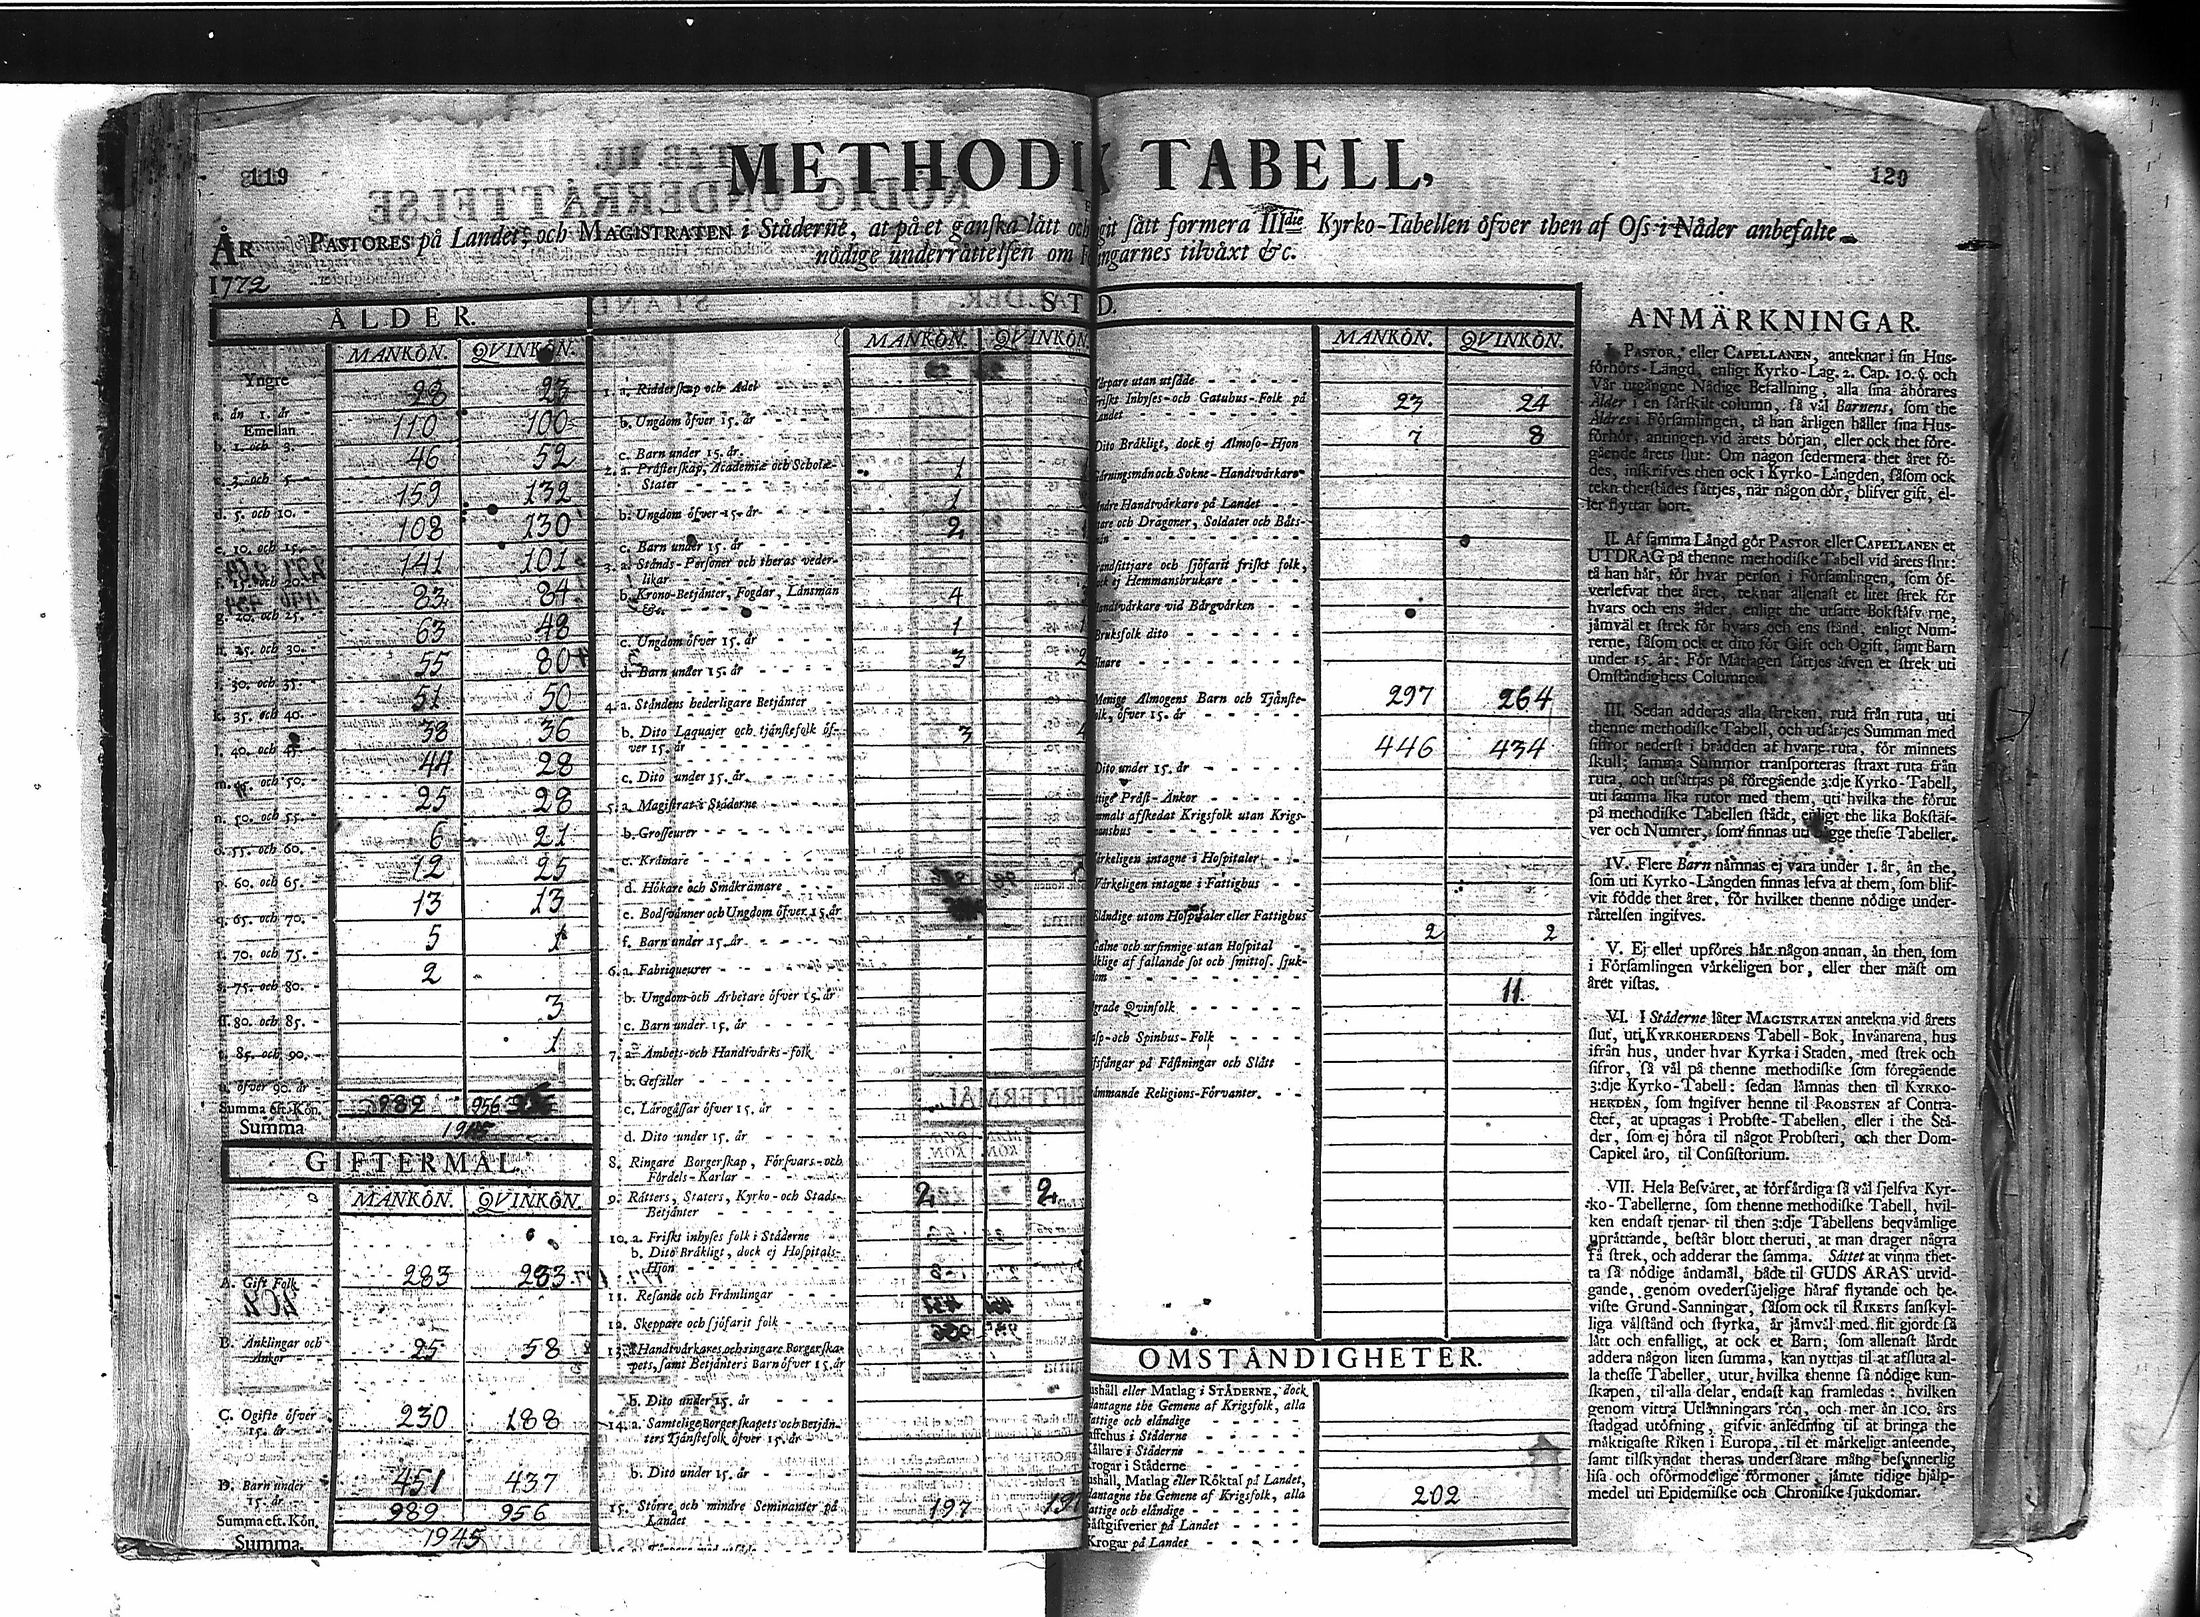 119
METHODIK TABELL,
120
ÅR PASTORES på Landet, och MAGISTRATEN i Ståderne, at på et ganska lått och git sått formera IIIdie Kyrko-Tabellen ôfver then af Oss i Nåder anbefalte
1772
nôdige underråttelsen om ingarnes tilvåxt &c.
ÅLDER.
MANKÔN. QVINKÔN.
Yngre 28 23
a. ån 1. år
Emellan 110 100
b. 1. och 3.
46 52
c. 3. och 5.
159 132
d. 5. och 10.
108 130
e. 10. och 15.
141 101
f. 15. och 20.
83 84
g. 20. och 25.
63 48
h. 25. och 30.
55 80
i. 30. och 35.
51 50
k. 35. och 40.
38 36
l. 40. och 45.
44 28
m. 45. och 50.
25 28
n. 50. och 55.
6 21
o. 55. och 60.
12 25
p. 60. och 65.
13 13
q. 65. och 70.
5
r. 70. och 75.
2
s. 75. och 80.
3
ss. 80. och 85.
1
t. 85. och 90.
u. ôfver 90. år
Summa eft. Kôn. 989 956
Summa 1945
GIFTERMÅL.
MANKÔN. QVINKÔN.
A. Gift Folk 283 283
B. Anklingar och Ånkor 25 58
C. Ogifte ôfver 15. år 230 188
D. Barn under 15. år 451 437
Summa eft. Kôn. 989 956
Summa. 1945
ST D.
MANKÔN. QVINKÔN.
1. a. Ridderskap och Adel
b. Ungdom ôfver 15. år
c. Barn under 15. år.
2. a. Pråsterskap, Academiæ och Scholæ-
Stater 1
b. Ungdom ôfver 15. år 1
c. Barn under 15. år 2
3. a. Stånds-Personer och theras veder-
likar
b. Krono-Betjånter, Fogdar, Lånsmån
&c. 4
c. Ungdom ôfver 15. år 1
d. Barn under 15. år 3 2
4. a. Ståndens hederligare Betjånter
b. Dito Laquajer och tjånstefolk ôf-
ver 15. år 3
c. Dito under 15. år
5. a. Magistrat i Ståderne
b. Grosseurer
c. Kråmare
d. Hôkare och Småkråmare
e. Bodsvånner och Ungdom ôfver 15. år
f. Barn under 15. år
6. a. Fabriqueurer
b. Ungdom och Arbetare ôfver 15. år
c. Barn under 15. år
7. a. Åmbets-och Handtvårks-folk
b. Gesåller
c. Lårogåssar ôfver 15. år
d. Dito under 15. år
8. Ringare Borgerskap, Fôrsvars-och
Fôrdels-Karlar
9. Råtters, Staters, Kyrko-och Stads-
Betjånter 2 2
10. a. Friskt inhyses folk i Ståderne
b. Dito Bråkligt, dock ej Hospitals-
Hjon
11. Resande och Fråmlingar
12. Skeppare och sjôfarit folk
13. a. Handtvårkares och ringare Borgerska-
pets, samt Betjånters Barn ôfver 15. år
b. Dito under 15. år
14. a. Samtelige Borgerskapets och Betjån-
ters Tjånstefolk ôfver 15. år
b. Dito under 15. år
15. Stôrre och mindre Seminanter på
Landet 197 197
MANKÔN. QVINKÔN.
rpare utan utsåde
riskt Inhyses-och Gatuhus-Folk på
andet 23 24
Dito Bråkligt, dock ej Almoso-Hjon 7 8
årningsmån och Sokne-Handtvårkare
ndre Handtvårkare på Landet
tare och Dragoner, Soldater och Båts-
ån
andsittjare och sjôfarit friskt folk,
ck ej Hemmansbrukare
andtvårkare vid Bårgvårken
Bruksfolk dito
lnare
Menige Almogens Barn och Tjånste-
lk, ôfver 15. år 297 264
Dito under 15. år 446 434
ttige Pråst-Ånkor
mmals afskedat Krigsfolk utan Krigs-
manshus
årkeligen intagne i Hospitaler
Vårkeligen intagne i Fattighus
Elåndige utom Hospitaler eller Fattighus
Galne och ursinnige utan Hospital 2 2
klige af fallande sot och smittos. sjuk-
dom
grade Qvinfolk 11
asp-och Spinhus-Folk
fsfångar på Fåstningar och Slått
åmmande Religions-Fôrvanter.
OMSTÅNDIGHETER.
ushåll eller Matlag i STÅDERNE, dock
dantagne the Gemene af Krigsfolk, alla
fattige och elåndige
affehus i Ståderne
ållare i Ståderne
rogar i Ståderne
ushåll, Matlag eller Rôktal på Landet,
dantagne the Gemene af Krigsfolk, alla
attige och elåndige 202
åstgifverier på Landet
Krogar på Landet
ANMÄRKNINGAR.
I. PASTOR, eller CAPELLANEN, anteknar i sin Hus-
fôrhôrs-Långd, enligt Kyrko-Lag. 2. Cap. 10. §. och
Vår utgångne Nådige Befallning, alla sina åhôrares
Ålder i en sårskilt column, så vål Barnens, som the
Åldres i Fôrsamlingen, tå han årligen håller sina Hus-
fôrhôr, antingen vid årets bôrjan, eller ock thet fôre-
gående årets slut: Om någon sedermera thet året fô-
des, inskrifves then ock i Kyrko-Långden, såsom ock
tekn therstådes såttjes, når någon dôr, blifver gift, el-
ler flyttar bort.
II. Af samma Långd gôr PASTOR eller CAPELLANEN et
UTDRAG på thenne methodiske Tabell vid årets slut:
tå han hår, fôr hvar person i Fôrsamlingen, som ôf-
verlefvat thet året, teknar allenast et litet strek fôr
hvars och ens ålder, enligt the utsatte Bokståfverne,
jåmvål et strek fôr hvars och ens stånd, enligt Num-
rerne, såsom ock et dito fôr Gift och Ogift, samt Barn
under 15. år: Fôr Matlagen såttjes åfven et strek uti
Omståndighets Columnen.
III. Sedan adderas alla streken, ruta från ruta, uti
thenne methodiske Tabell, och utsåtjes Summan med
siffror nederst i brådden af hvarje ruta, fôr minnets
skull; samma Summor transporteras straxt ruta från
ruta, och utsåttjas på fôregående 3:dje Kyrko-Tabell,
uti samma lika rutor med them, uti hvilka the fôrut
på methodiske Tabellen stådt, enligt the lika Bokståf-
ver och Numrer, som finnas uti bågge thesse Tabeller.
IV. Flere Barn nåmnas ej vara under 1. år, ån the,
som uti Kyrko-Långden finnas lefva af them, som blif-
vit fôdde thet året, fôr hvilket thenne nôdige under-
råttelsen ingifves.
V. Ej eller upfôres hår någon annan, ån then, som
i Fôrsamlingen vårkeligen bor, eller ther måst om
året vistas.
VI. I Ståderne låter MAGISTRATEN antekna vid årets
slut, uti KYRKOHERDENS Tabell-Bok, Invånarena, hus
ifrån hus, under hvar Kyrka i Staden, med strek och
sifror, så vål på thenne methodiske som fôregående
3:dje Kyrko-Tabell: sedan låmnas then til KYRKO-
HERDEN, som ingifver henne til PROBSTEN af Contra-
ctet, at uptagas i Probste-Tabellen, eller i the Stå-
der, som ej hôra til något Probsteri, och ther Dom-
Capitel åro, til Consistorium.
VII. Hela Besvåret, at fôrfårdiga så vål sjelfva Kyr-
ko-Tabellerne, som thenne methodiske Tabell, hvil-
ken endast tjenar til then 3:dje Tabellens beqvåmlige
upråttande, består blott theruti, at man drager några
få strek, och adderar the samma. Såttet at vinna thet-
ta så nôdige åndamål, både til GUDS ÅRAS utvid-
gande, genom ovedersåjelige håraf flytande och be-
viste Grund-Sanningar, såsom ock til RIKETS sanskyl-
liga vålstånd och styrka, år jåmvål med flit gjordt så
lått och enfalligt, at ock et Barn, som allenast lårdt
addera någon liten summa, kan nyttjas til at afsluta al-
la thesse Tabeller, utur hvilka thenne så nôdige kun-
skapen, til alla delar, endast kan framledas: hvilken
genom vittra Utlånningars rôn, och mer ån 100. års
stadgad utôfning, gifvit anledning til at bringa the
måktigaste Riken i Europa, til et mårkeligt anseende,
samt tilskyndat theras undersåtare mång besynnerlig
lisa och ofôrmodelige fôrmoner, jåmte tidige hjålp-
medel uti Epidemiske och Chroniske sjukdomar.